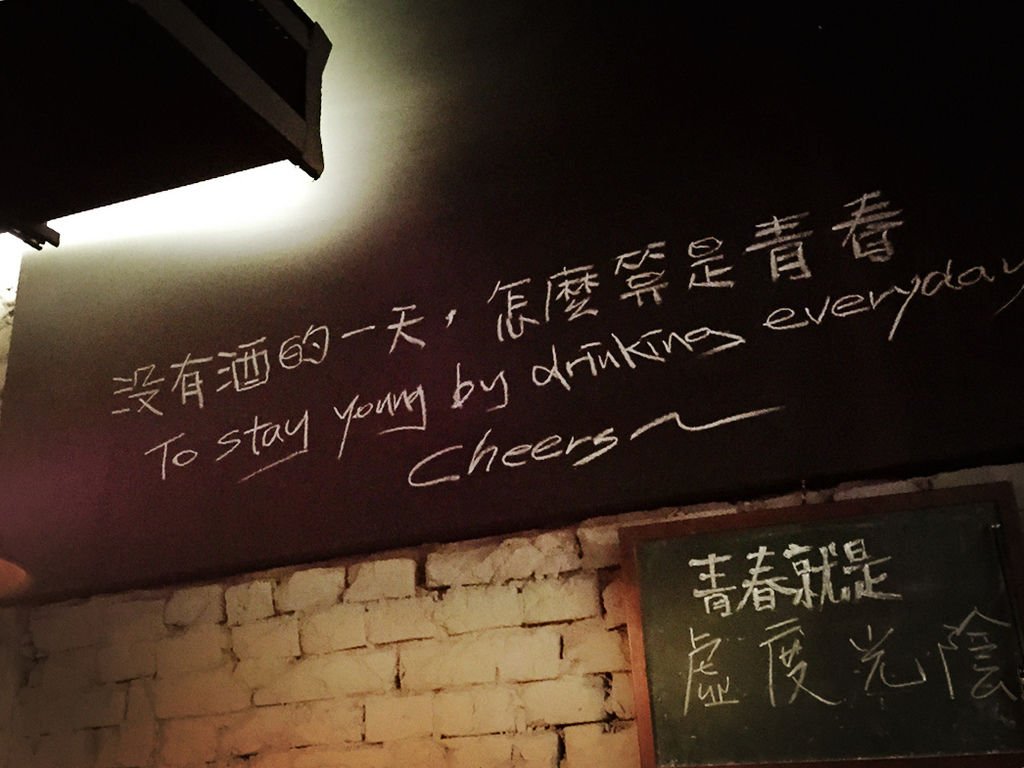 没有酒的一天，怎麼算是青春
To stay young by drinking everyday
Cheers～
青春就是
虛度光陰